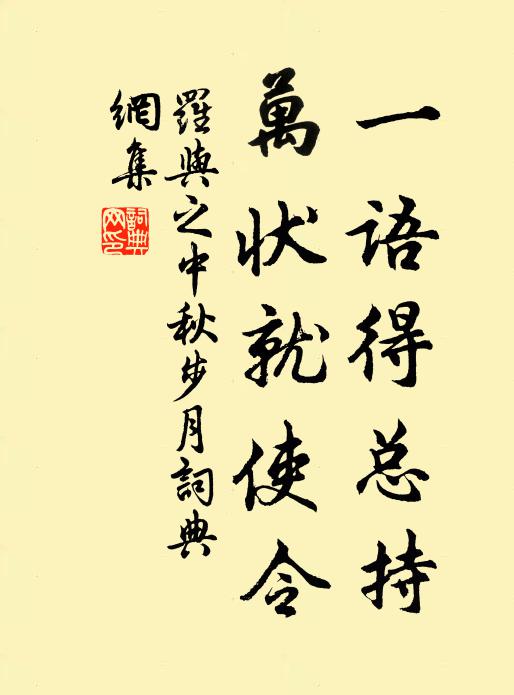 一语得总持
萬状就使令
羅與之中秋步月詞典
網集
詞典網印